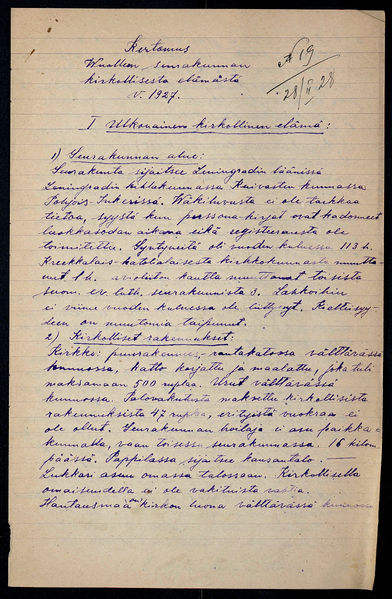 Kertomus
Wuolteen seurakunnan
kirkollisesta elämästä
v. 1927.
№ 19
28/II 28
I Ulkonainen kirkollinen elämä:
1) Seurakunnan alue:
Seurakunta sijaitsee Leningradin läänissä
Leningradin kihlakunnassa Kuivasten kunnassa
Pohjois-Inkerissä. Wäkiluvusta ei ole tarkkaa
tietoa, syystä kun persoona kirjat ovat kadonneet
luokkasodan aikana eikä registreerausta ole
toimitettu. Syntyneitä oli vuoden kuluessa 113 h.
Kreekkalais-katolalaisesta kirkkokunnasta muutta-
nut 1 h. avioliiton kautta muuttanut toisista
suom. ev. luth. seurakunnista 3. Lahkoihin
ei viime vuoden kuluessa ole liittynyt. Kieltensyy-
deen on muutomia taipunut.
2) Kirkolliset rakennukset:
Kirkko: puurakennus, rautakatossa välttävässä
kunnossa, katto korjattu ja maalattu, joka tuli
maksamaan 500 ruplaa. Urut välttävässä
kunnossa. Palovakuutusta maksettu kirkollisista
rakennuksista 47 ruplaa, erityistä vuokraa ei
ole ollut. Seurakunnan hoitaja ei asu paikka-
kunnalla, vaan toisessa seurakunnassa. 16 kilom
päässä. Pappilassa sijaitsee kansantalo.
Lukkari asuu omassa talossaan. Kirkollisella
omaisuudella ei ole vakituista vahtia.
Hautausmaa on kirkon luona välttävässä kunnossa